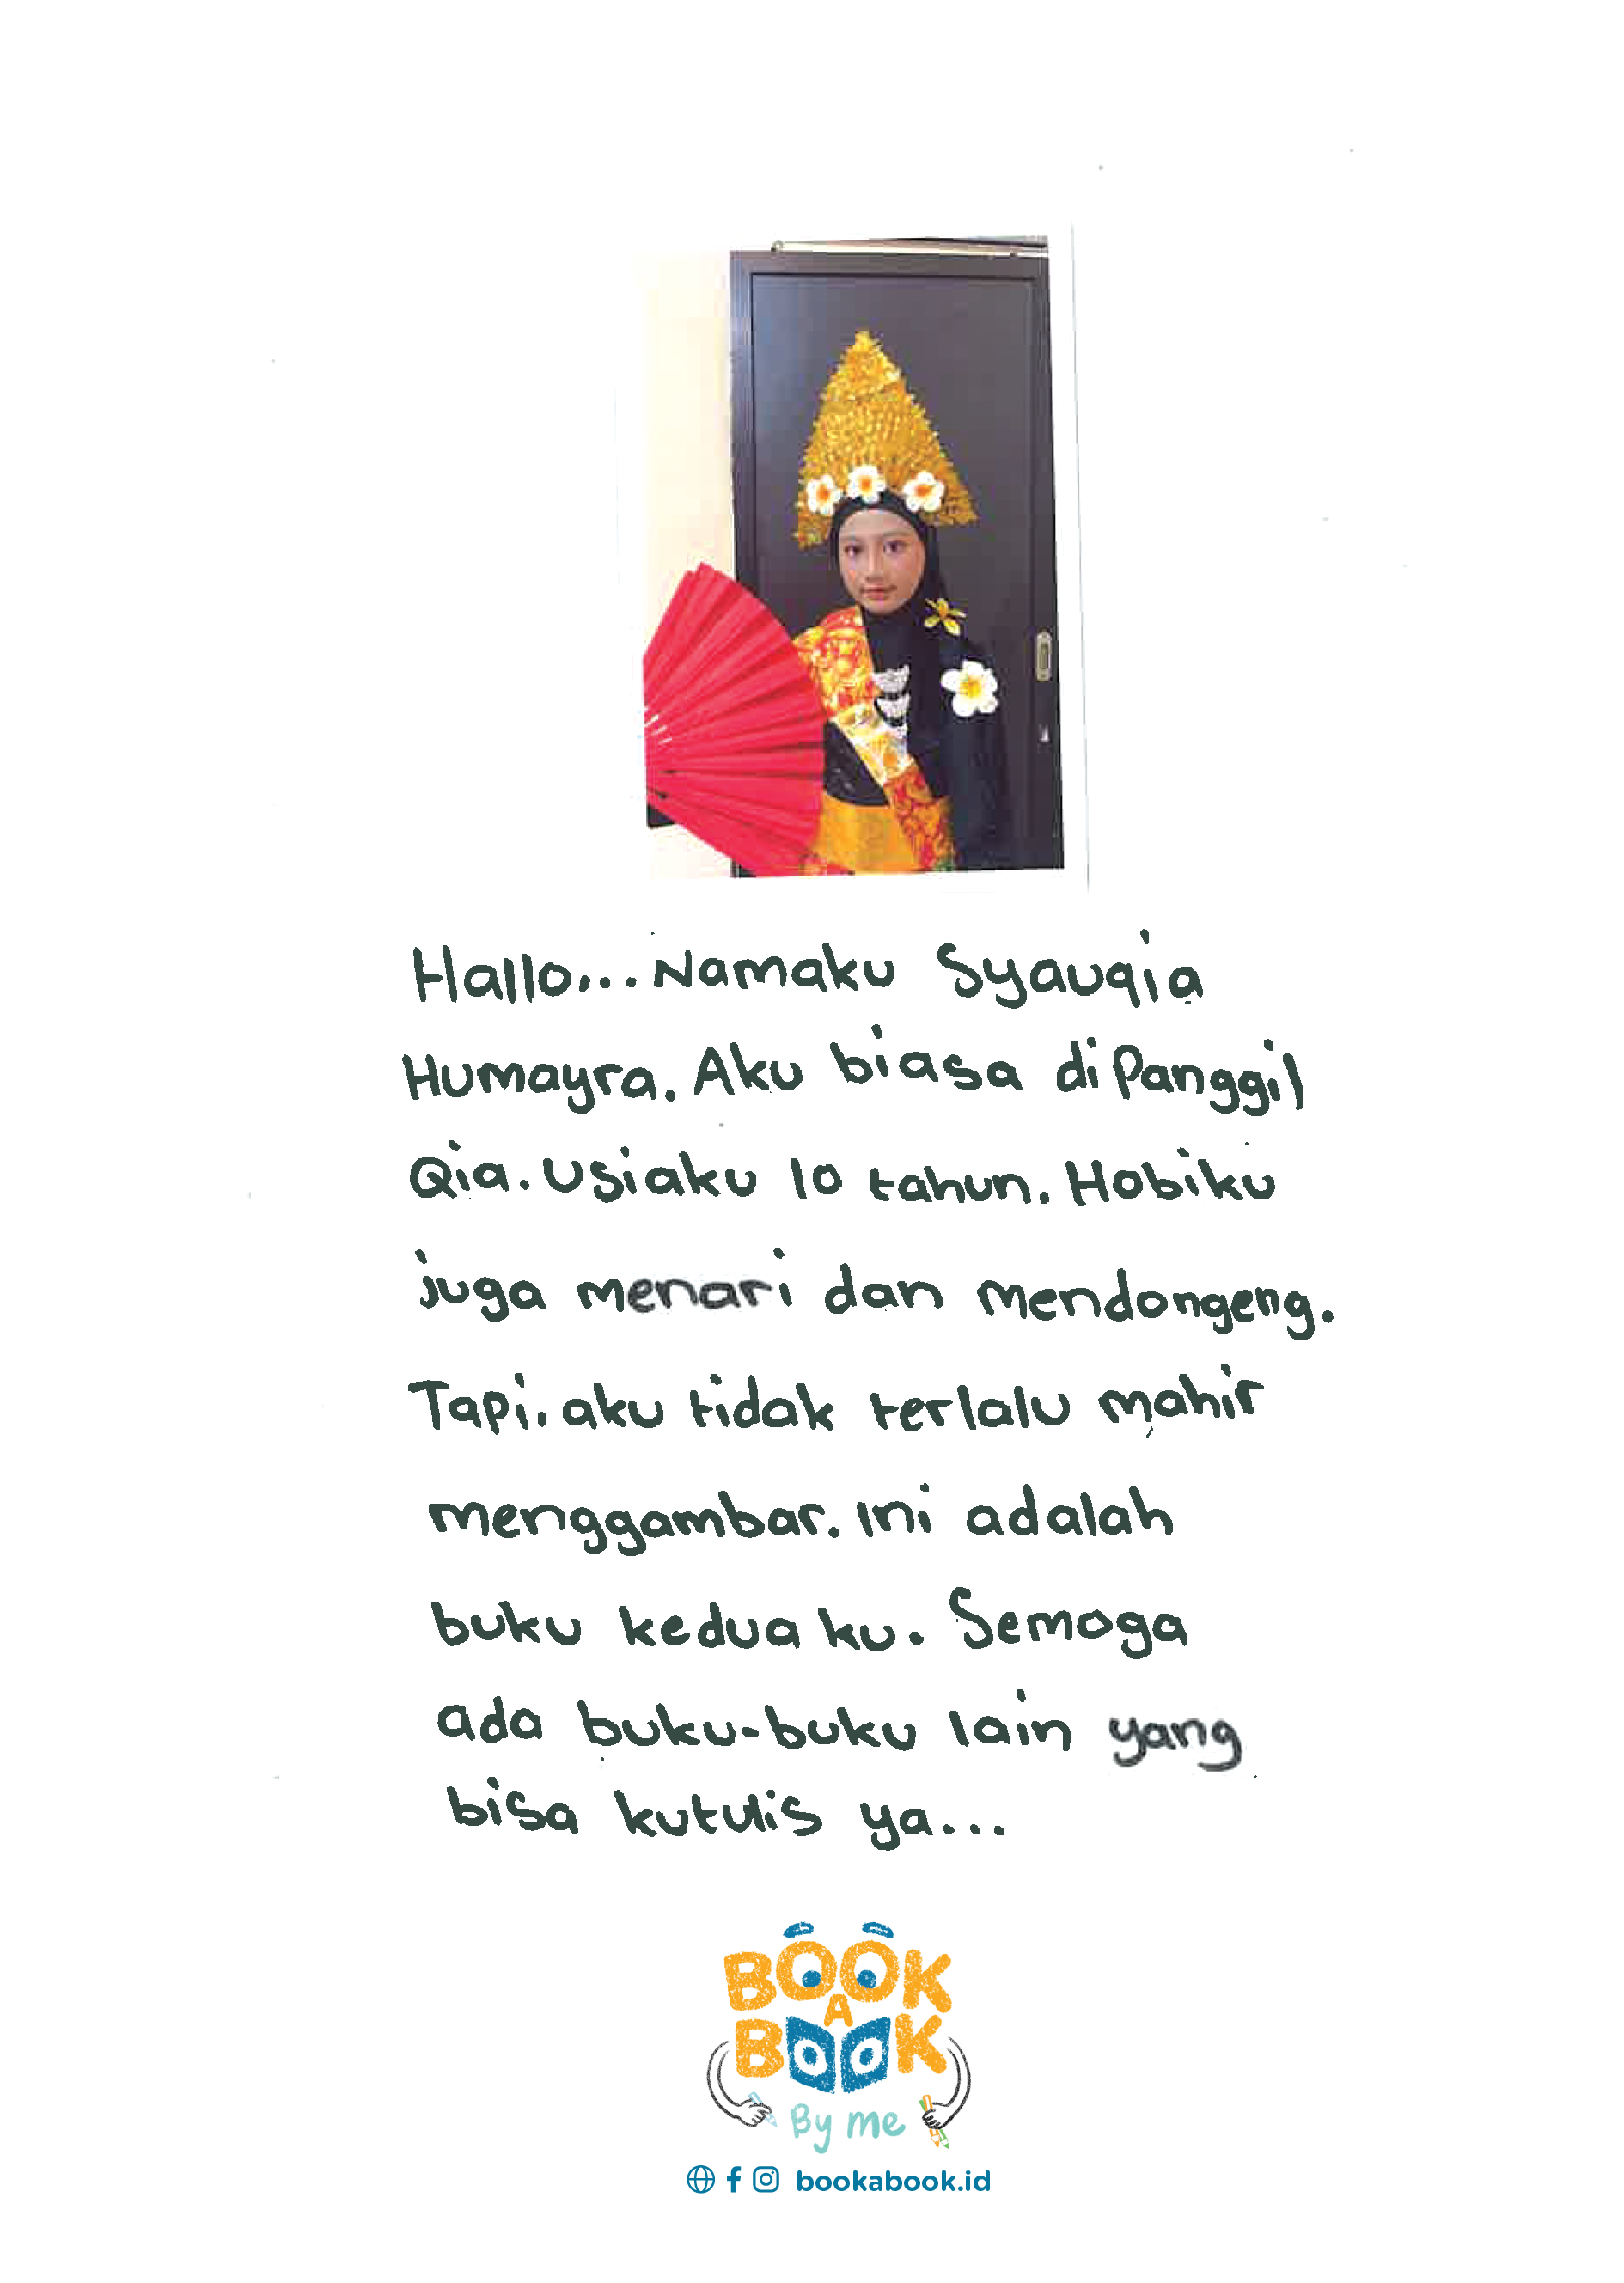 Hallo... Namaku Syauqia
Humayra. Aku biasa diPanggil
Qia. Usiaku 10 tahun. Hobiku
juga menari dan mendongeng.
Tapi. aku tidak terlalu mahir
menggambar. Ini adalah
buku kedua ku. Semoga
ada buku-buku lain yang
bisa kutulis ya...
BOOK
A
BOOK
By me
bookabook.id